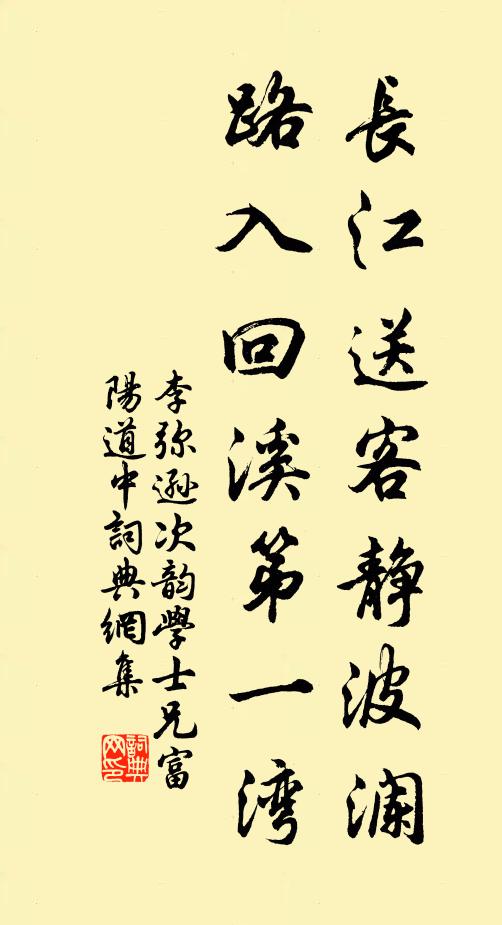 長江送客静波澜
路入回溪第一湾
李弥遜次韵學士兄富
陽道中詞典網集
詞典
网印